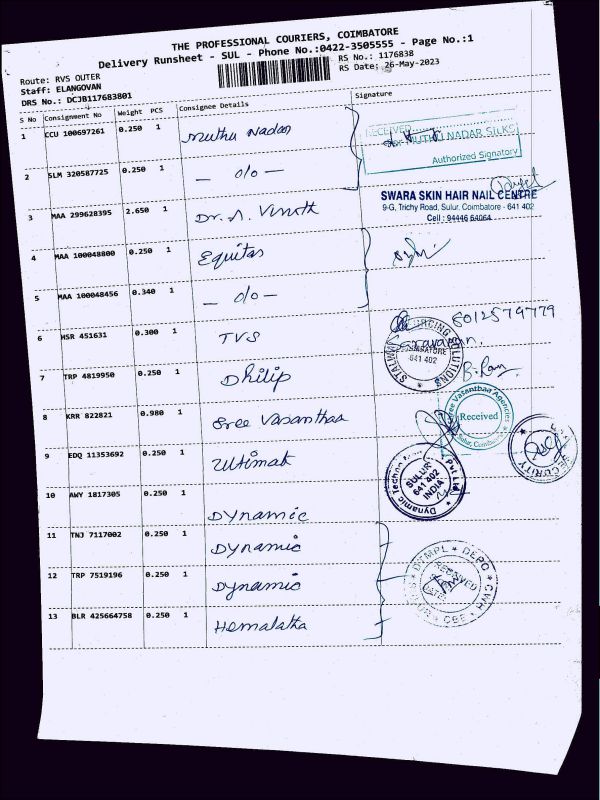 THE PROFESSIONAL COURIERS, COIMBATORE
Delivery Runsheet - SUL - Phone No.:0422-3505555 - Page No.:1
Route: RVS OUTER
Staff: ELANGOVAN
DRS No.: DCJB117683801
RS No.: 1176838
RS Date: 26-May-2023
S No Consignment No Weight PCS Consignee Details Signature
1 CCU 100697261 0.250 1 Muthu Nadar
RECEIVED
MUTHU NADAR SILKS
Authorized Signatory
2 SLM 320587725 0.250 1 — o/o —
3 MAA 299628395 2.650 1 Dr. A. Vinoth
SWARA SKIN HAIR NAIL CENTRE
9-G, Trichy Road, Sulur, Coimbatore - 641 402
Cell : 94446 64064
4 MAA 100048800 0.250 1 Equitas
5 MAA 100048456 0.340 1 — o/o —
6 HSR 451631 0.300 1 TVS
8012579779
Saravanan.
641 402
7 TRP 4819950 0.250 1 Dhilip
B. Ram
8 KRR 822821 0.980 1 Sree Vasanthaa
Sree Vasanthaa Agencies
Received
Sulur, Coimbatore
9 EDQ 11353692 0.250 1 Ultimate
SECURITY
10 AWY 1817305 0.250 1 Dynamic
Dynamic Techno Pvt Ltd
SULUR
641 402
INDIA
11 TNJ 7117002 0.250 1 Dynamic
12 TRP 7519196 0.250 1 Dynamic
DEPO ★ CWH ★ CBE
RECEIVED
DATE
13 BLR 425664758 0.250 1 Hemalatha